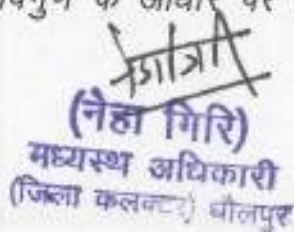 के आधार पर
(नेहा गिरि)
मध्यस्थ अधिकारी
(जिला कलक्टर) धौलपुर